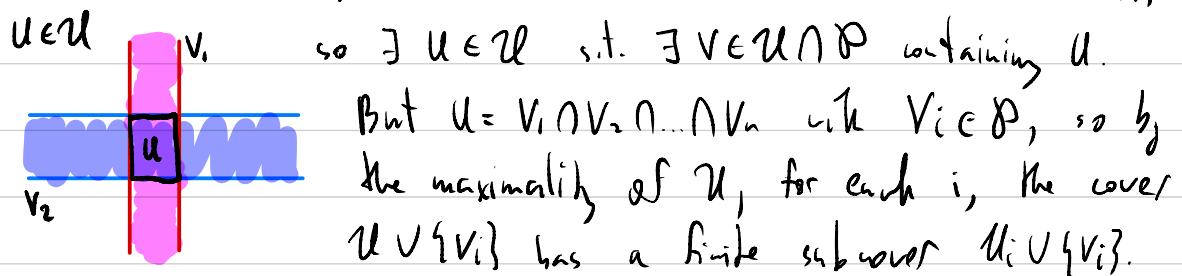 U ∈ 𝒰
V₁
U
V₂
so ∃ U ∈ 𝒰 s.t. ∃ V ∈ 𝒰 ∩ 𝒫 containing U.
But U = V₁ ∩ V₂ ∩ ... ∩ Vₙ with Vᵢ ∈ 𝒫, so by
the maximality of 𝒰, for each i, the cover
𝒰 ∪ {Vᵢ} has a finite subcover 𝒰ᵢ ∪ {Vᵢ}.